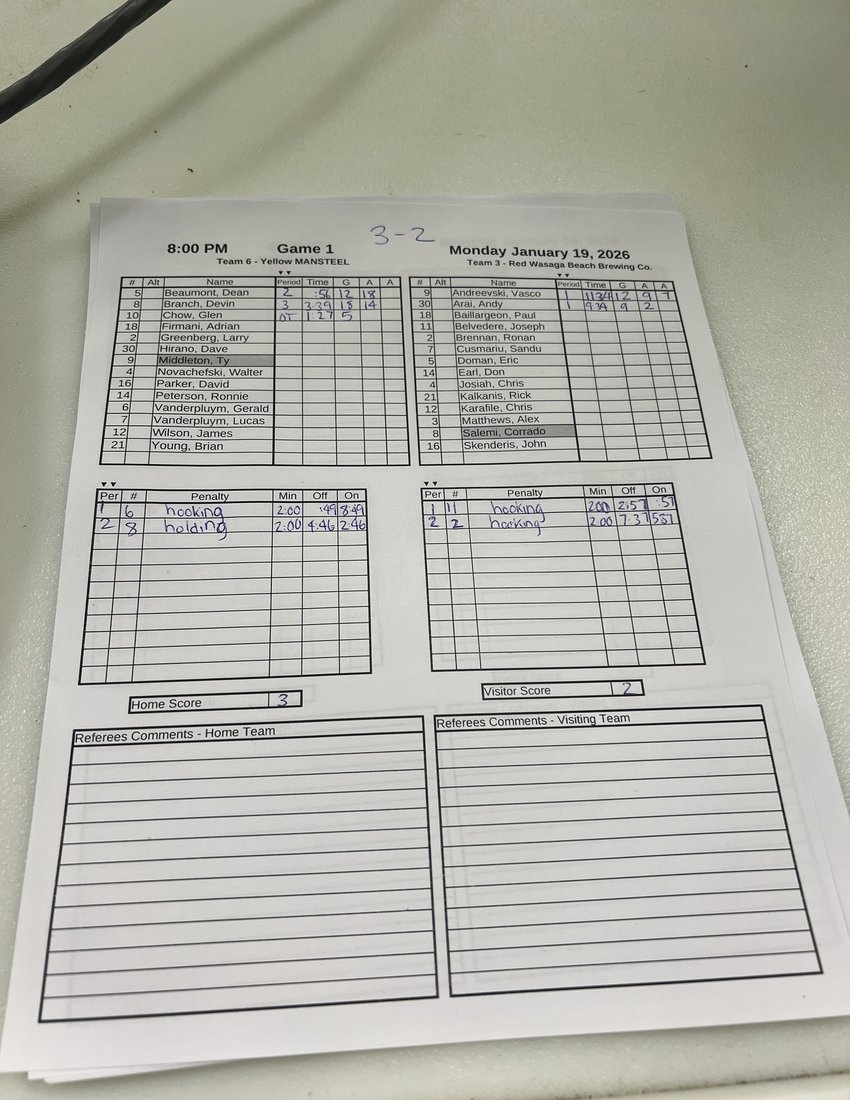 3-2
8:00 PM Game 1 Monday January 19, 2026
Team 6 - Yellow MANSTEEL Team 3 - Red Wasaga Beach Brewing Co.
# Alt Name Period Time G A A
5 Beaumont, Dean 2 :56 12 18
8 Branch, Devin 3 3:39 18 14
10 Chow, Glen OT 1:27 5
18 Firmani, Adrian
2 Greenberg, Larry
30 Hirano, Dave
9 Middleton, Ty
4 Novachefski, Walter
16 Parker, David
14 Peterson, Ronnie
6 Vanderpluym, Gerald
7 Vanderpluym, Lucas
12 Wilson, James
21 Young, Brian
# Alt Name Period Time G A A
9 Andreevski, Vasco 1 11:34 12 9 7
30 Arai, Andy 1 9:34 9 2
18 Baillargeon, Paul
11 Belvedere, Joseph
2 Brennan, Ronan
7 Cusmariu, Sandu
5 Doman, Eric
14 Earl, Don
4 Josiah, Chris
21 Kalkanis, Rick
12 Karafile, Chris
3 Matthews, Alex
8 Salemi, Corrado
16 Skenderis, John
Per # Penalty Min Off On
1 6 hooking 2:00 :49 8:49
2 8 holding 2:00 4:46 2:46
Per # Penalty Min Off On
1 11 hooking 2:00 2:57 :57
2 2 hooking 2:00 7:37 5:37
Home Score 3
Visitor Score 2
Referees Comments - Home Team
Referees Comments - Visiting Team